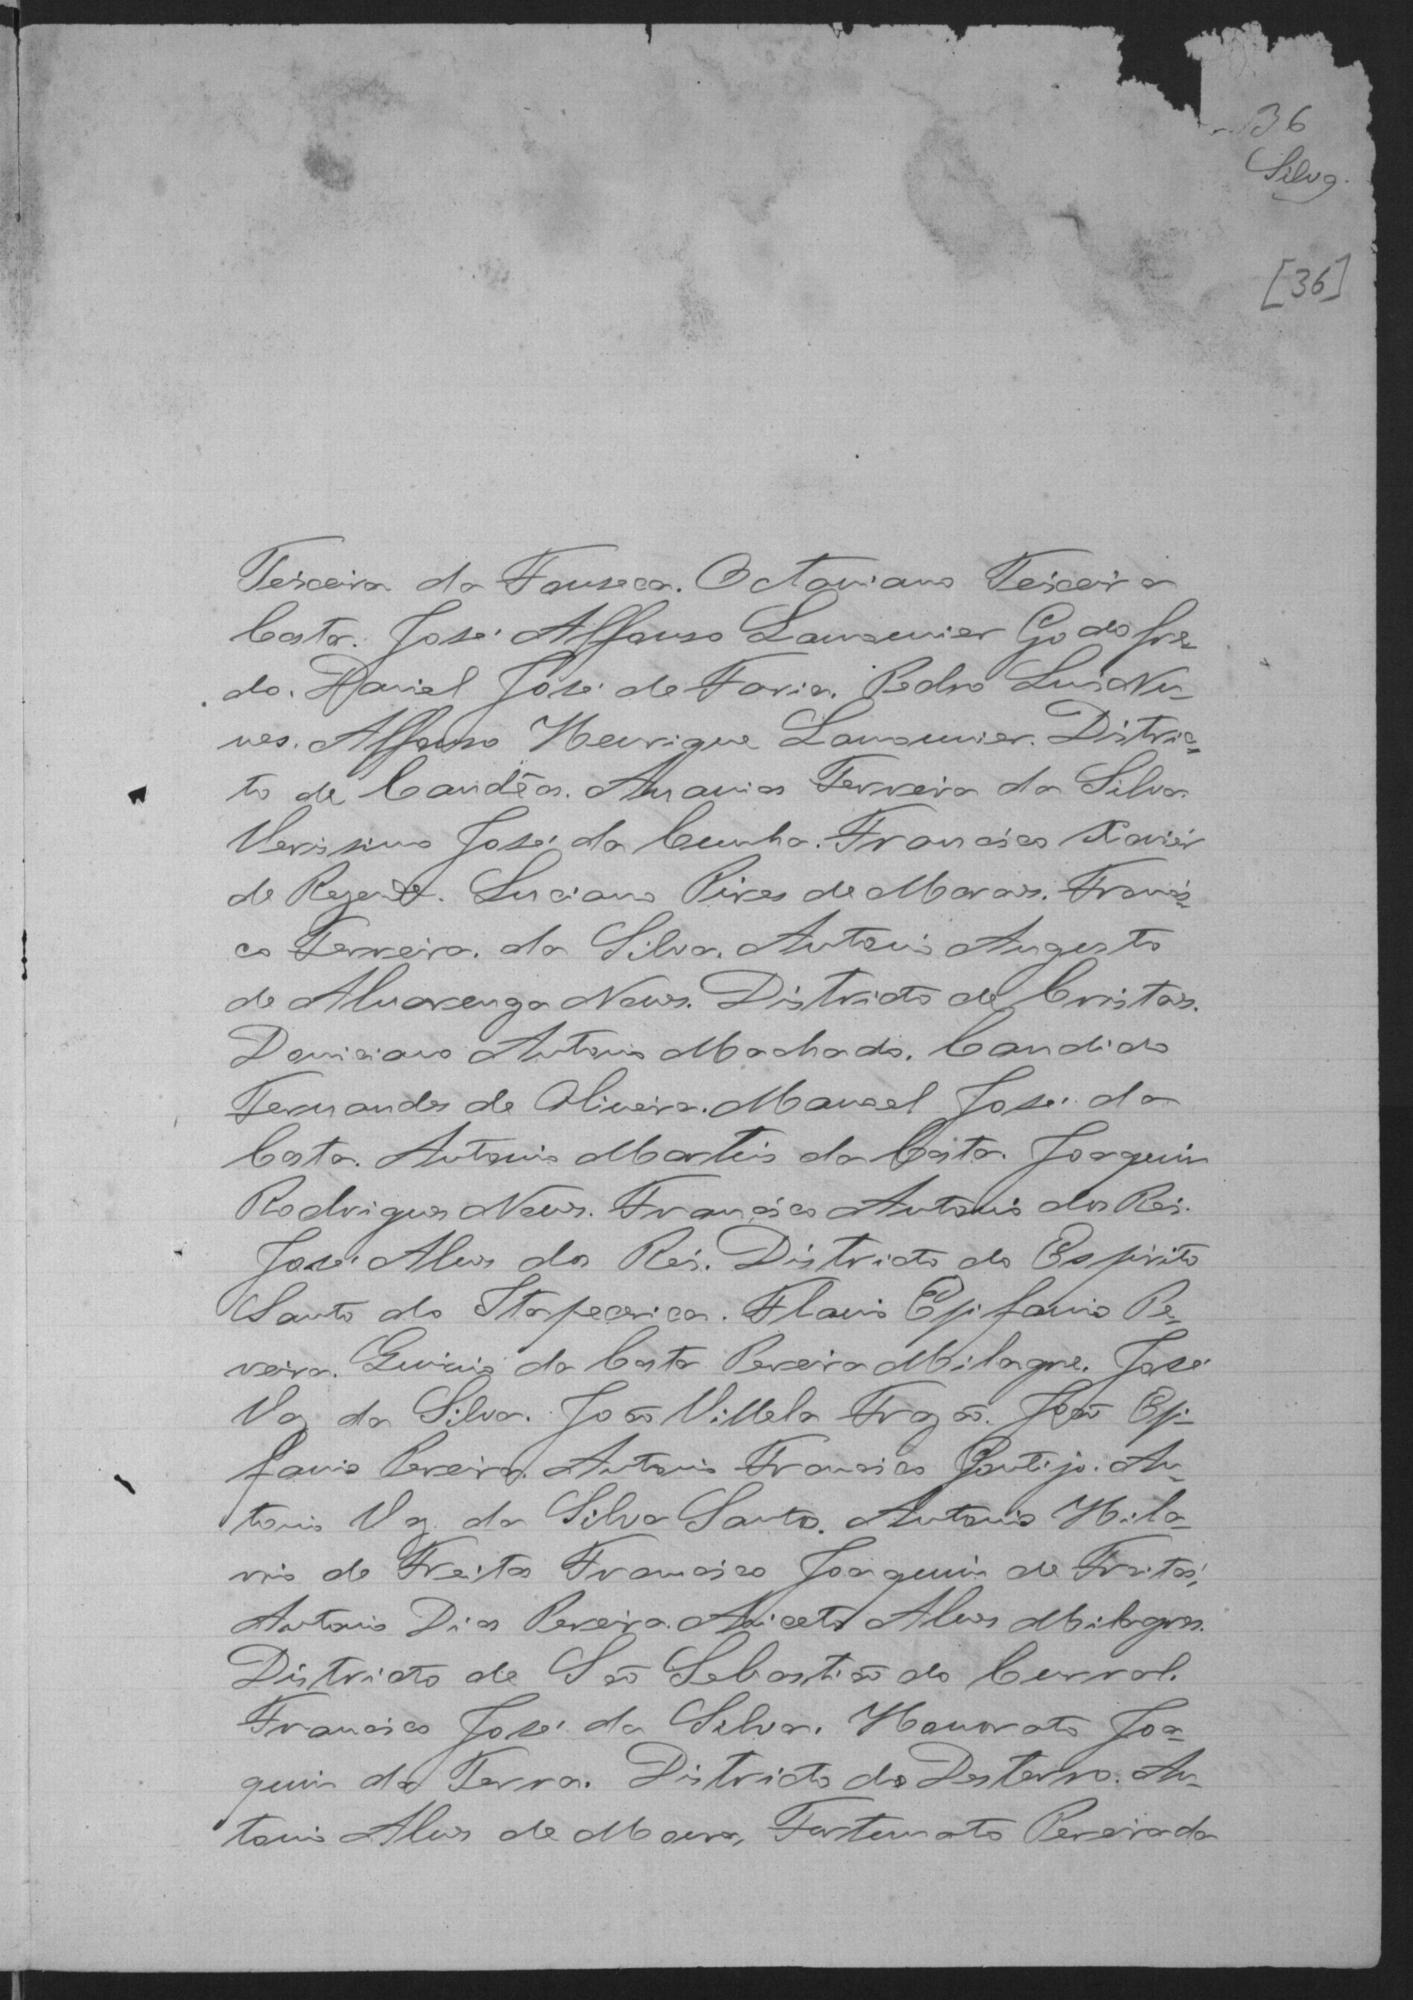 36
Silva.
[36]
Teixeira da Fonseca. Octaviano Teixeira
Costa. José Affonso Lamounier Godofre-
do. Daniel José de Faria. Pedro Luis Nu-
nes. Affonso Henrique Lamounier. Distric-
to de Candêas. Ananias Ferreira da Silva
Verissimo José da Cunha. Francisco Xavier
de Rezende. Luciano Pires de Moraes. Francis-
co Ferreira da Silva. Antonio Augusto
de Alvarenga Neves. Districto de Cristaes.
Domiciano Antonio Machado. Candido
Fernandes de Oliveira. Manoel José da
Costa. Antonio Martins da Costa. Joaquim
Rodrigues Neves. Francisco Antonio dos Reis.
José Alves dos Reis. Districto do Espirito
Santo do Itapecerica. Flavio Epifanio Pe-
reira. da Costa Pereira Milagre. José
Vaz da Silva. João Villela Frazão. João Epi-
fanio Pereira. Antonio Francisco Gontijo. An-
tonio Vaz da Silva Santos. Antonio Hila-
rio de Freitas Francisco Joaquim de Freitas,
Antonio Dias Pereira. Aniceto Alves Milagres.
Districto de São Sebastião do Curral.
Francisco José da Silva. Honorato Joa-
quim da Terra. Districto do Desterro. An-
tonio Alves de Moura, Fortunato Pereira da